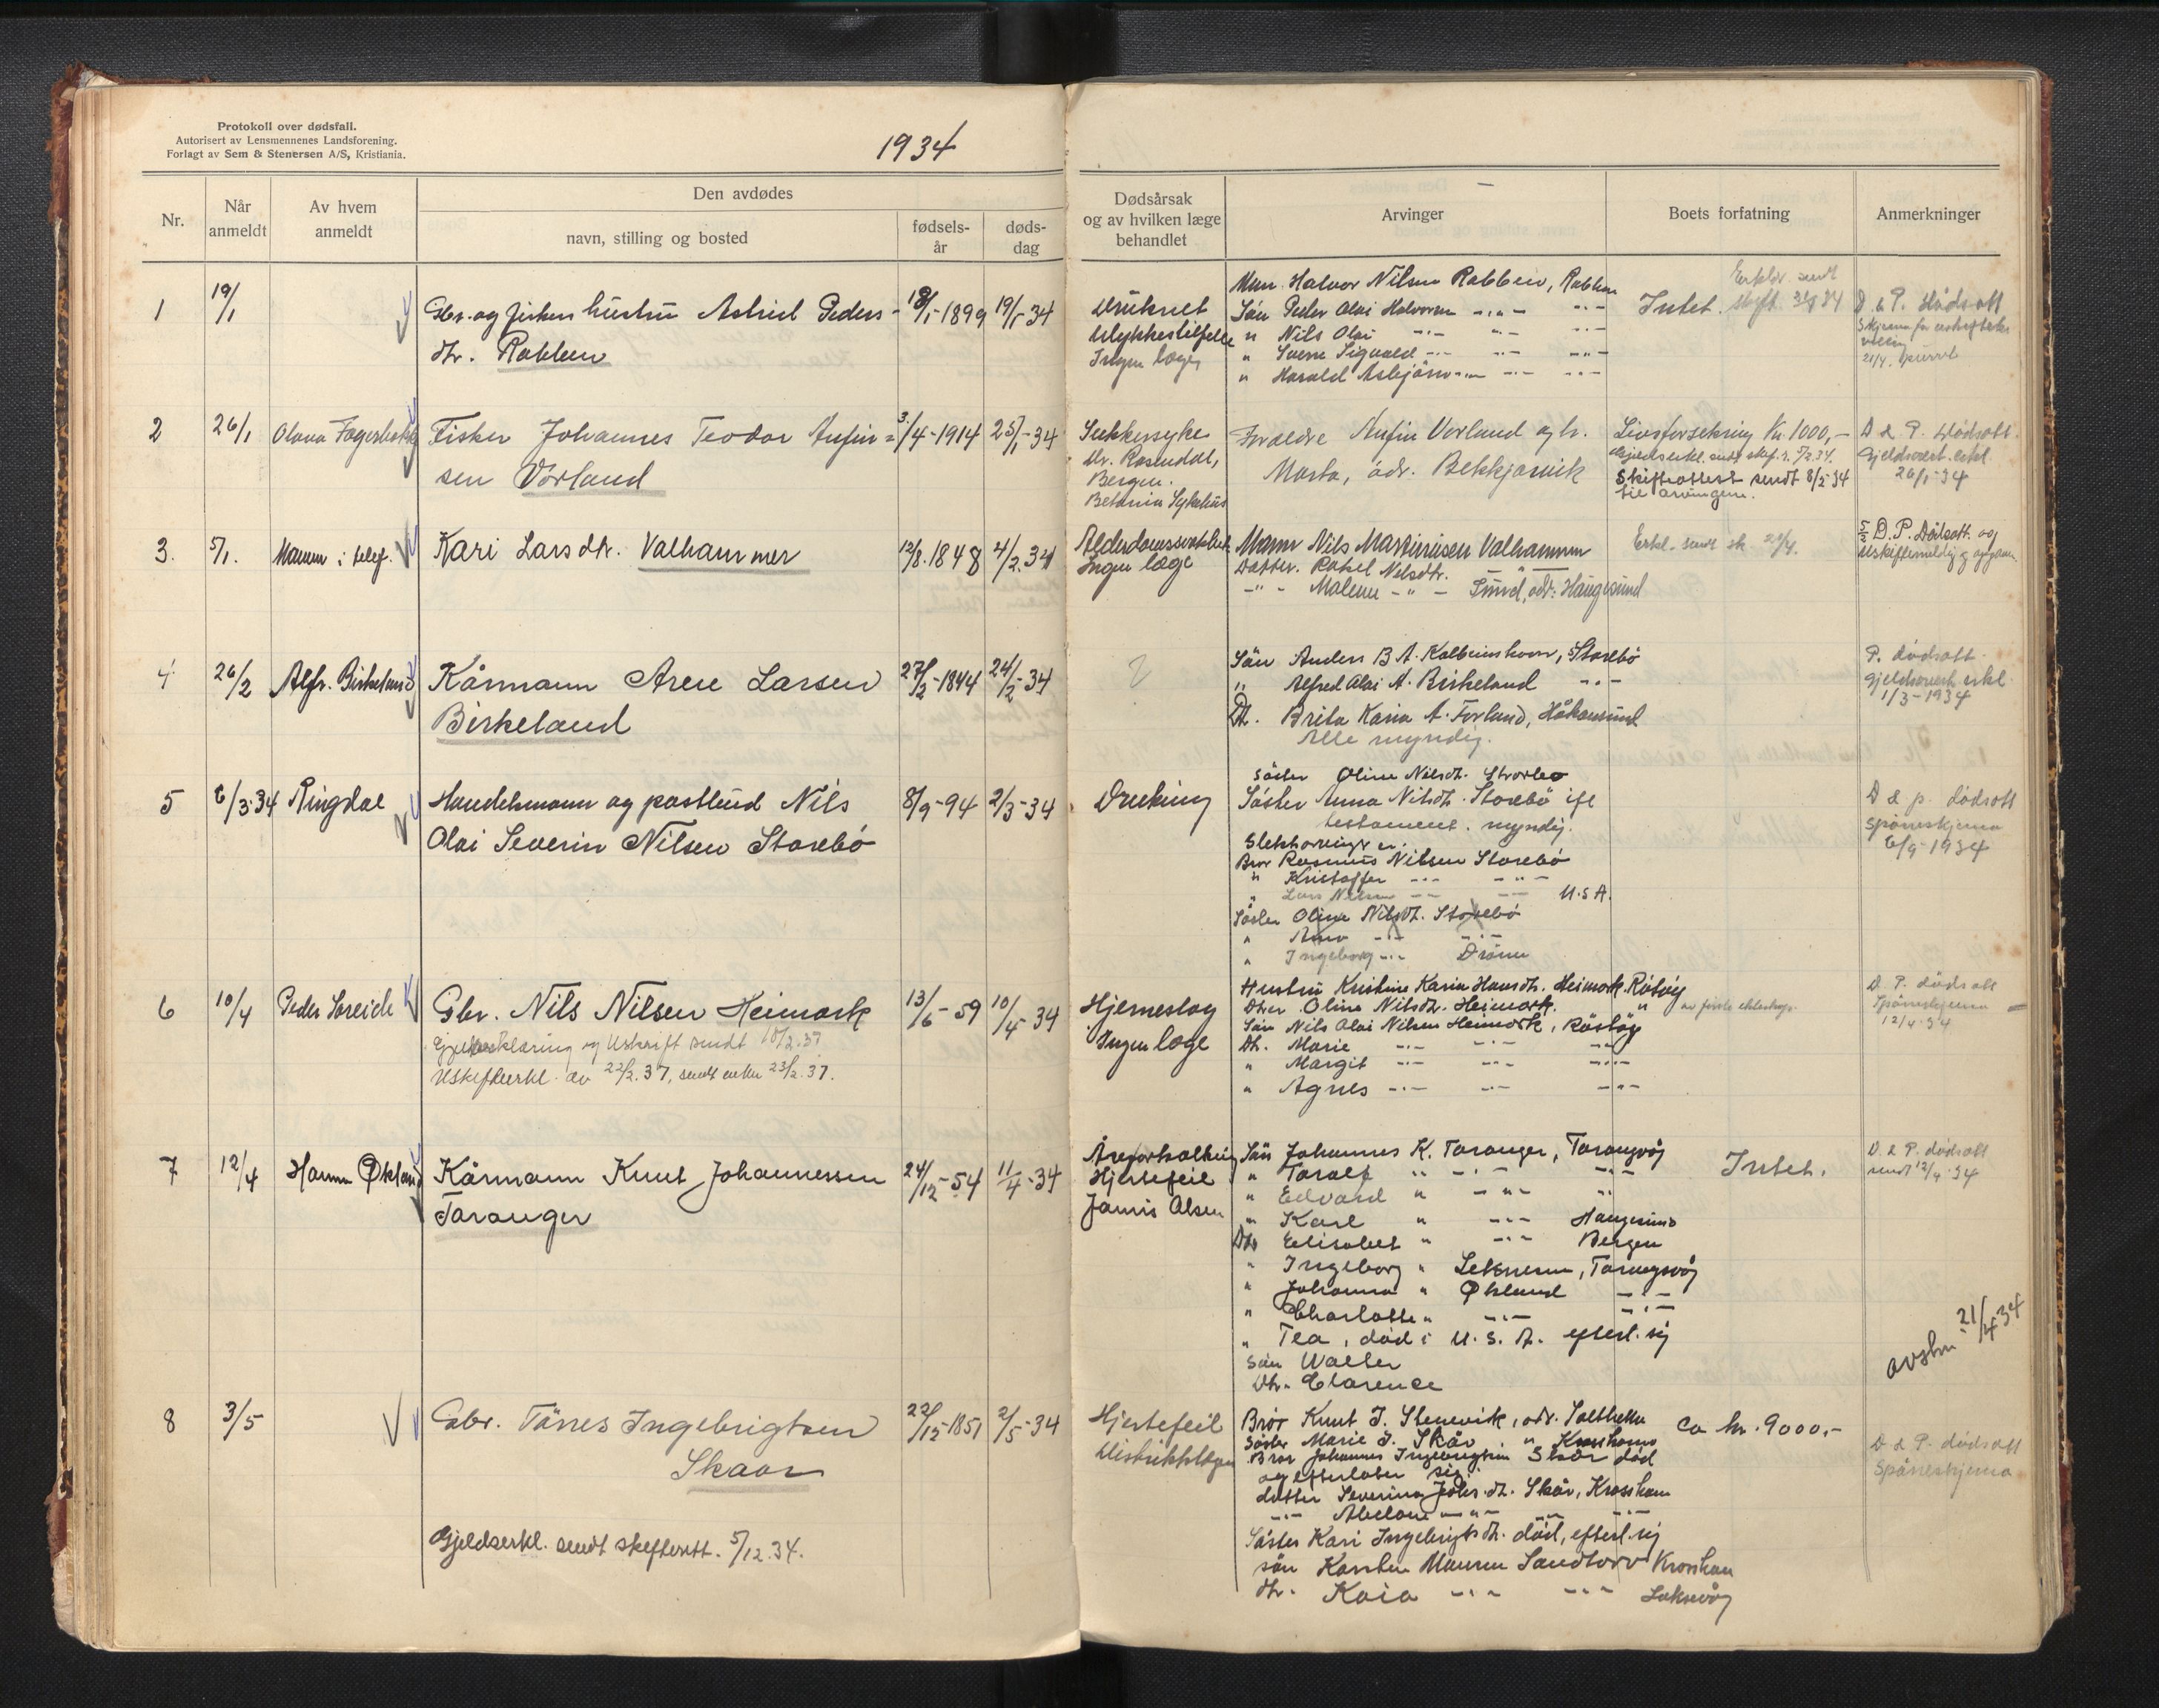 Protokoll over dødsfall.
Autorisert av Lensmennenes Landsforening.
Forlagt av Sem & Stenersen A/S, Kristiania.
1934
Nr.
Når anmeldt
Av hvem anmeldt
Den avdødes
navn, stilling og bosted
fødsels-år
døds-dag
Dødsårsak
og av hvilken læge
behandlet
Arvinger
Boets forfatning
Anmerkninger
1 19/1 Gbr. og fiskers hustru Astrid Peders- 1899 19/1-34
dtr. Rabben
Druknet
Ulykkestilfelle
Ingen læge
Man Halvor Nilsen Rabben, Rabben
Sön Peder Olai Halvorsen -"- -"-
" Nils Olai -"- -"- -"-
" Sverre Sigvald -"- -"- -"-
" Harald Asbjörn -"- -"- -"-
Intet.
D & P. dödsatt
21/4. purret
2 26/1 Olava Fagerbakke Fisker Johannes Teodor Anfin= 3/4-1914 25/1-34
sen Vorland
Sukkersyke
Dr. Rosendal,
Bergen.
Betania Sykehus
Foreldre Anfin Vorland og h.
Marta, adr. Bekkjarvik
Livsforsekring kr. 1000,-
Skifteattest sendt 8/2-34
til arvingene.
D & P. Dödsatt.
Gjeldsovert. erkl
26/1-34
3. 5/1. Mannen i telef. Kari Larsdtr. Valhammer 12/8.1848 4/2.34
Alderdomssvakhet
Ingen læge
Mann Nils Martinusen Valhammer
Datter. Rakel Nilsdtr. -"-
-"- Malene -"- Sund, adr: Haugesund
Erkl. sendt sk. 21/4.
5/2 D. P. Dödsatt. og
4 26/2 Alfr. Birkeland Kårmann Arne Larsen 27/2-1844 24/2-34
Birkeland
Sön Anders B A. Kolbeinshavn, Storebö
" Alfred Olai A. Birkeland -"-
Dt. Brita Karina A. Forland, Håkansund
Alle myndig.
P. dödsatt
gjeldsovert. erkl.
1/3-1934
5 6/3-34 Ringdal Handelsmann og postbud Nils 8/9-94 2/3-34
Olai Severin Nilsen Storebö
Drukning
Söster Oline Nilsdt. Storebö
Söster Anna Nilsdt. Storebö ifl
testament. myndig.
Slektarvinger er.
Bror Rasmus Nilsen Storebö
" Kristoffer -"- -"-
" Lars Nilsen -"- -"- U.S.A.
Söster Oline Nilsdt. Storebö
" Anna -"- -"-
" Ingeborg -"- Drönen
D & p. dödsatt
Spörreskjema
6/9-1934
6 10/4 Peder Söreide Gbr. Nils Nilsen Heimark 13/6-59 10/4-34
Gjeldserklæring og Utskrift sendt 10/2.37
Uskifteerkl. av 22/2.37, sendt enken 23/2.37.
Hjerneslag
Ingen læge
Hustru Kristine Karina Hansdt. Heimark. Röstöy
Dtter Oline Nilsdt. Heimark. " av förste ekteskap.
Sön Nils Olai Nilsen Heimark, Röstöy
Dt. Marie -"- -"- -"-
" Margit -"- -"- -"-
" Agnes -"- -"- -"-
D. P. dödsatt
Spörreskjema
12/4-34
7 12/4 Hanna Økland Kårmann Knut Johannessen 24/12-54 11/4-34
Taranger
Åreforkalkning
Hjertefeil
Janris Olsen
Sön Johannes K. Taranger, Tarangvåg
" Toralf " -"- -"-
" Edvard " -"- "
" Karl " -"- Haugesund
Dtr Elisabet " -"- Bergen
" Ingeborg " Leknesen, Tarangsvåg
" Johanna " Økland -"-
" Charlotte " -"- -"-
" Tea, död i U.S.A. efterl. sig
Sön Walter
Dtr. Clarence
Intet.
D & P. dödsatt
sendt 12/4-34
avslm 21/4 34
8 3/5 Gbr. Tönnes Ingebrigtsen 22/12-1851 2/5-34
Skaar
Gjeldserkl. sendt skifterett. 5/12.34.
Hjertefeil
Distriktslægen
Bror Knut J. Stenevik, adr. Salthella
Söster Marie J. Skår " Krosshamn
Bror Johannes Ingebrigtsen Skår död
og efterlater sig:
datter Severina Johs. dt. Skår, Krosshamn
-"- Abelone -"- -"- -"-
Söster Kari Ingebrigtsdt. död, efterl. sig
sön Karsten Monsen Sandtorv Krosshavn
dtr. Kaia -"- -"- Laksevåg
ca kr. 9000,-
D & P. dödsatt
Spörreskjema